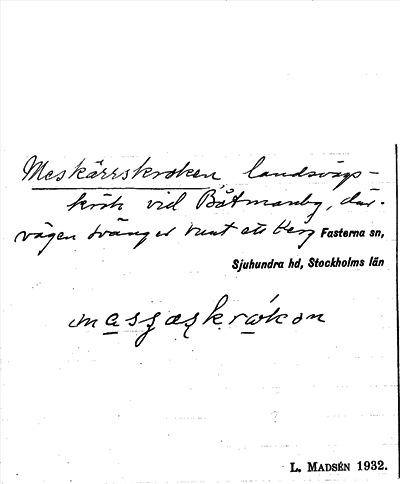 Meskärrskroken, landsvägs-
krök vid Båtmanby, där
vägen svänger runt ett berg Fasterna sn,
Sjuhundra hd, Stockholms län
L. MADSÉN 1932.